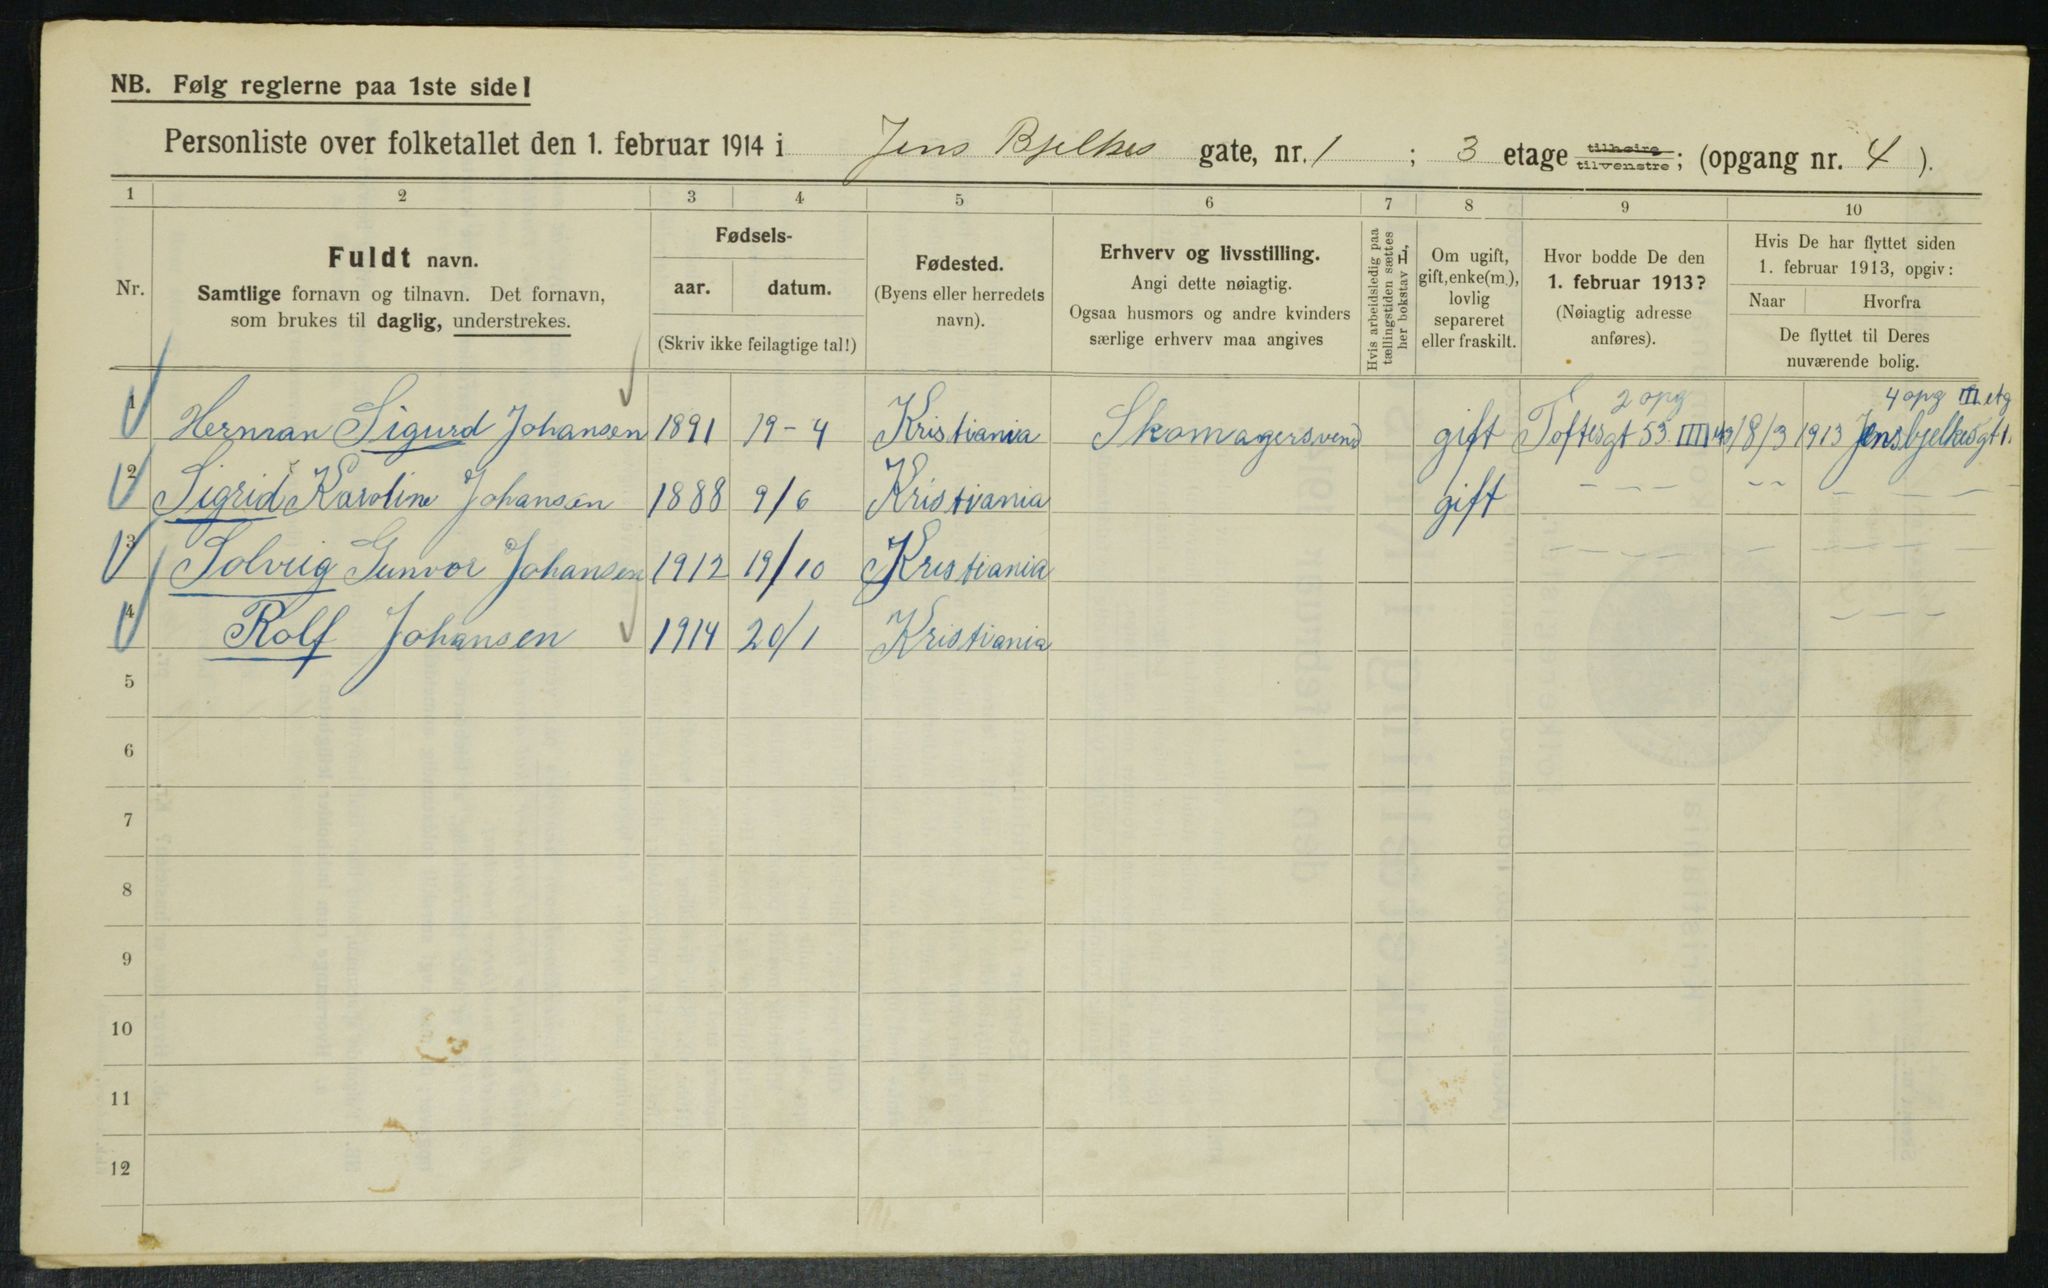 NB. Følg reglerne paa 1ste side!
Personliste over folketallet den 1. februar 1914 i Jens Bjelkes gate, nr. 1 ; 3 etage tilhøire tilvenstre; (opgang nr. 4 ).
1 2 3 4 5 6 7 8 9 10
Nr.
Fuldt navn.
Samtlige fornavn og tilnavn. Det fornavn,
som brukes til daglig, understrekes.
Fødsels-
aar. datum.
(Skriv ikke feilagtige tal!)
Fødested.
(Byens eller herredets
navn).
Erhverv og livsstilling.
Angi dette nøiagtig.
Ogsaa husmors og andre kvinders
særlige erhverv maa angives
Hvis arbeidsledig paa
tællingstiden sættes
her bokstav L,
Om ugift,
gift, enke(m.),
lovlig
separeret
eller fraskilt.
Hvor bodde De den
1. februar 1913?
(Nøiagtig adresse
anføres).
Hvis De har flyttet siden
1. februar 1913, opgiv:
Naar Hvorfra
De flyttet til Deres
nuværende bolig.
2 opg 4 opg III etg
1 Herman Sigurd Johansen 1891 19-4 Kristiania Skomagersvend gift Toftesgt 53 18/3 1913 Jens bjelkesgt 1.
2 Sigrid Karoline Johansen 1888 9/6 Kristiania gift - - - - - - - - -
3 Solveig Gunvor Johansen 1912 19/10 Kristiania - - - - - - - - -
4 Rolf Johansen 1914 20/1 Kristiania - - -
5
6
7
8
9
10
11
12